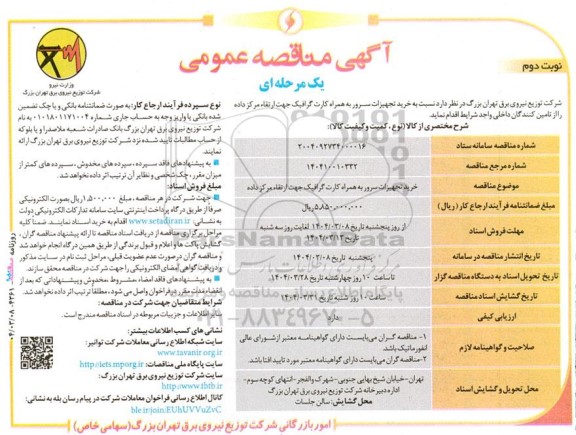 آگهی مناقصه عمومی
یک مرحله ای
نوبت دوم
وزارت نیرو
شرکت توزیع نیروی برق تهران بزرگ
شرکت توزیع نیروی برق تهران بزرگ در نظر دارد نسبت به خرید تجهیزات سرور به همراه کارت گرافیک جهت ارتقاء مرکز داده
را از تامین کنندگان داخلی واجد شرایط اقدام نماید.
شرح مختصری از کالا (نوع ، کمیت و کیفیت کالا):
شماره مناقصه سامانه ستاد
۲۰۰۴۰۹۲۷۳۴۰۰۰۰۱۶
شماره مرجع مناقصه
۱۴۰۴۱۰۰۱۰۳۳۲
موضوع مناقصه
خرید تجهیزات سرور به همراه کارت گرافیک، جهت ارتقاء مرکز داده
مبلغ ضمانتنامه فرآیند ارجاع کار (ریال)
۵،۸۵۰،۰۰۰،۰۰۰ ریال
مهلت فروش اسناد
از روز پنجشنبه تاریخ ۱۴۰۴/۰۳/۰۸ لغایت روز سه شنبه
تاریخ ۱۴۰۴/۰۳/۱۳
تاریخ انتشار مناقصه در سامانه
پنجشنبه تاریخ ۱۴۰۴/۰۳/۰۸
تاریخ تحویل اسناد به دستگاه مناقصه گزار
تا ساعت ۱۰ روز چهارشنبه تاریخ ۱۴۰۴/۰۳/۲۸
تاریخ گشایش اسناد مناقصه
ساعت ۱۰ روز شنبه تاریخ ۱۴۰۴/۰۳/۳۱
ارزیابی کیفی
دارد
صلاحیت و گواهینامه لازم
۱- مناقصه گران می‌بایست دارای گواهینامه معتبر از شورای عالی
انفورماتیک باشد.
۲-مناقصه گران می‌بایست دارای گواهینامه معتبر مورد تایید افتا باشد.
محل تحویل و گشایش اسناد
تهران-خیابان شیخ بهایی جنوبی-شهرک والفجر-انتهای کوچه سوم-
اداره دبیرخانه شرکت توزیع نیروی برق تهران بزرگ
محل گشایش: سالن جلسات
نوع سپرده فرآیند ارجاع کار: به صورت ضمانتنامه بانکی و یا چک تضمین
شده بانکی یا واریز وجه به حساب جاری شماره ۰۱۰۱۸۰۱۱۷۱۰۰۴ به نام
شرکت توزیع نیروی برق تهران بزرگ بانک صادرات شعبه ملاصدرا و یا بلوکه
از حساب مطالبات تایید شده نزد شرکت توزیع نیروی برق تهران بزرگ ارائه
نمایند.
به پیشنهادهای فاقد سپرده ، سپرده های مخدوش ، سپرده های کمتر از
میزان مقرر ، چک شخصی و نظایر آن ترتیب اثر داده نخواهد شد.
مبلغ فروش اسناد:
جهت شرکت در هر مناقصه ، مبلغ ۱،۵۰۰،۰۰۰ ریال بصورت الکترونیکی
صرفا از طریق درگاه پرداخت اینترنتی سایت سامانه تدارکات الکترونیکی دولت
به نشانی www.setadiran.ir اقدام به خرید اسناد نمایند. ضمنا کلیه
مراحل برگزاری مناقصه از دریافت اسناد مناقصه تا ارائه پیشنهاد مناقصه گران ،
گشایش پاکت ها و اعلام و قبول برندگی از طریق همین درگاه انجام خواهد شد
و مناقصه گران درصورت عدم عضویت قبلی، مراحل ثبت نام در سایت مذکور
و دریافت گواهی امضای الکترونیکی را جهت شرکت در مناقصه محقق سازند.
به پیشنهادهای فاقد امضاء ، مشروط ، مخدوش و پیشنهاداتی که بعد از
انقضاء مدت مقرر در فراخوان واصل می شود ، مطلقا ترتیب اثر داده نخواهد شد.
شرایط متقاضیان جهت شرکت در مناقصه:
سایر اطلاعات و جزییات مربوطه در اسناد مناقصه مندرج است.
نشانی های کسب اطلاعات بیشتر:
سایت شبکه اطلاع رسانی معاملات شرکت توانیر:
www.tavanir.org.ir
سایت پایگاه ملی مناقصات: http://iets.mporg.ir
سایت شرکت توزیع نیروی برق تهران بزرگ:
http://www.tbtb.ir
کانال اطلاع رسانی فراخوان معاملات شرکت در پیام رسان بله به نشانی:
ble.ir/join/EUhUVVuZvC
امور بازرگانی شرکت توزیع نیروی برق تهران بزرگ (سهامی خاص)
۰۲۱-۸۸۳۴۹۶۷۰-۵